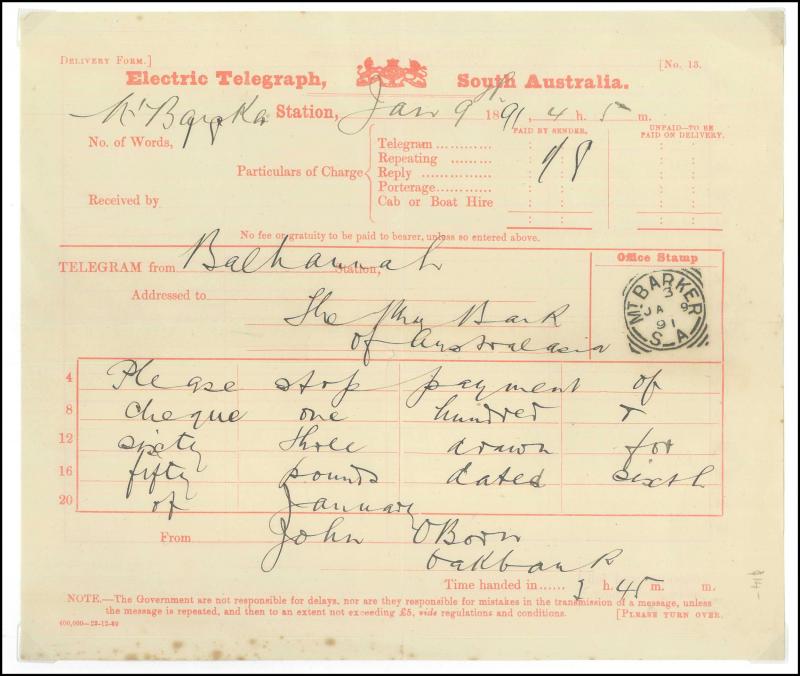 DELIVERY FORM.] [No. 13.
Electric Telegraph, South Australia.
Mt Barker Station, Jan 9th 1891, 4 h. 5 m.
No. of Words, PAID BY SENDER. UNPAID—TO BE PAID ON DELIVERY.
Particulars of Charge
Telegram ............
Repeating .........
Reply ...............
Porterage............
Cab or Boat Hire
1/8
Received by
No fee or gratuity to be paid to bearer, unless so entered above.
TELEGRAM from Balhannah Station,
Office Stamp
MT BARKER
3
JA 9
91
S—A
Addressed to The Bank
of Australasia
4 Please stop payment of
8 cheque one hundred &
12 sixty three drawn for
16 fifty pounds dated sixth
20 of January
From John OBorn
Oakbank
Time handed in...... 3 h. 45 m. m.
NOTE.—The Government are not responsible for delays, nor are they responsible for mistakes in the transmission of a message, unless
the message is repeated, and then to an extent not exceeding £5, vide regulations and conditions. [PLEASE TURN OVER.
400,000—23-12-89